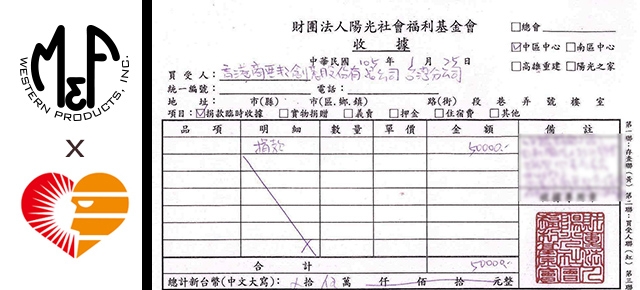 M&F
WESTERN PRODUCTS, INC.
X
財團法人陽光社會福利基金會
收據
□總會
☑中區中心 □南區中心
□高雄重建 □陽光之家
中華民國 105 年 1 月 25 日
買受人:
股份有限公司 台灣分公司
統一編號: 電話:
地址: 市(縣) 市(區.鄉.鎮) 路(街) 段 巷 弄 號 樓 室
項目:☑捐款臨時收據 □實物捐贈 □義賣 □押金 □住宿費 □其他
品項 明細 數量 單價 金額 備註
捐款 50000.-
合計 50000.-
總計新台幣(中文大寫): 拾 伍 萬 仟 佰 拾 元整
第一聯:存查聯(黃) 第二聯:買受人聯(紅) 第三聯